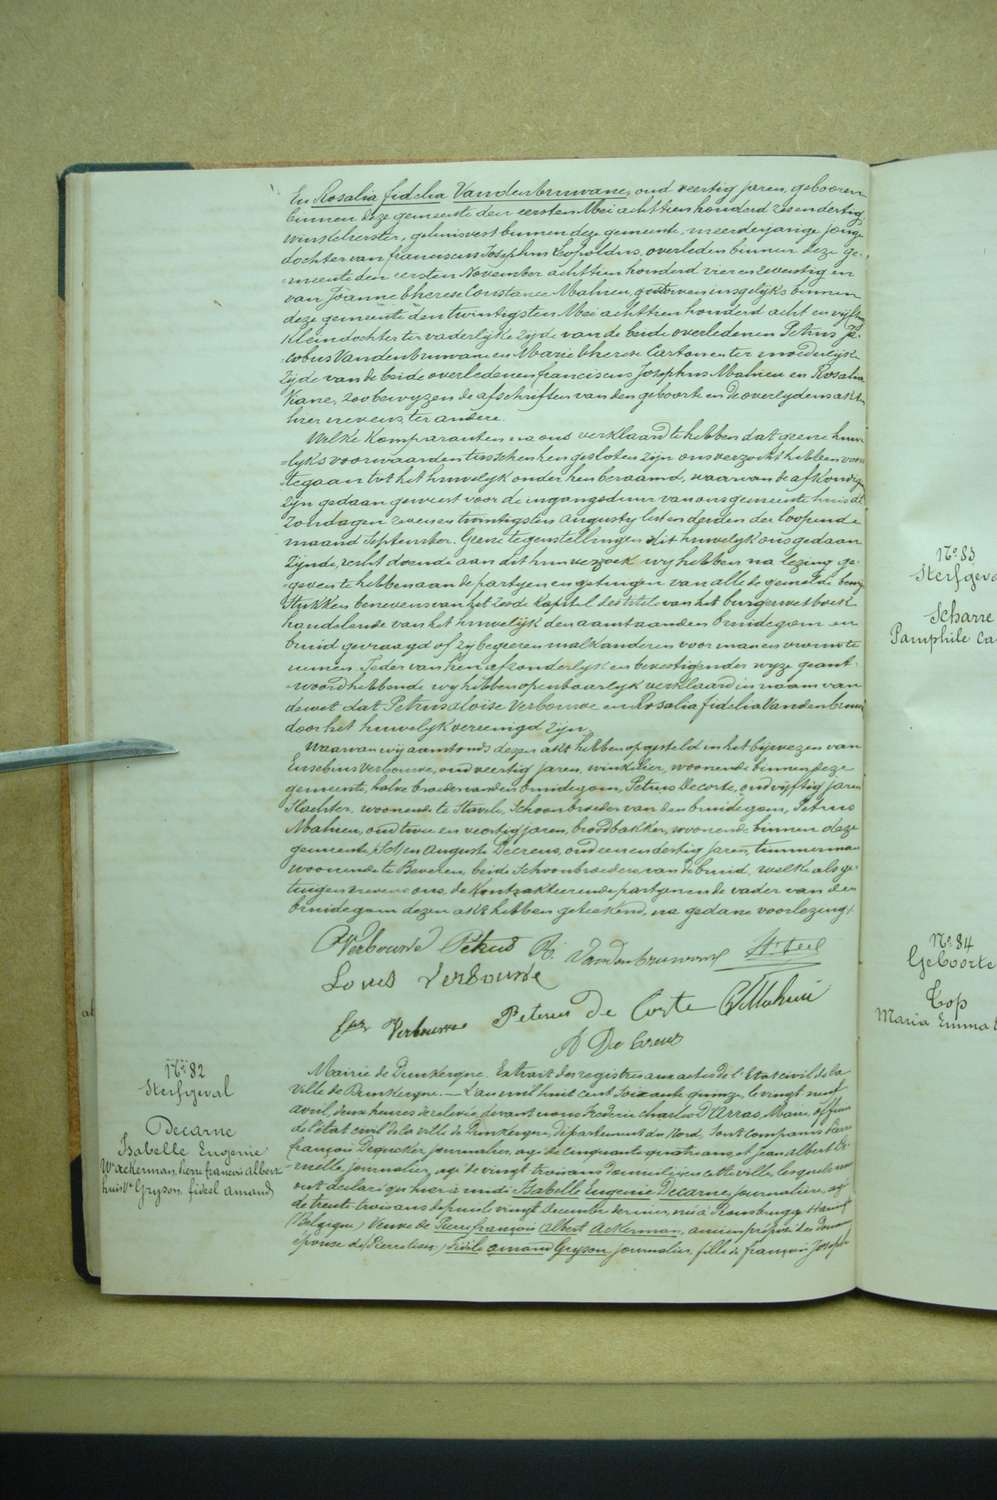 En Rosalia fidelia Vandenbruwane, oud veertig jaren, geboren
binnen deze gemeente den eersten Mei achttien honderd zes en dertig
winkelierster, gehuisvest binnen deze gemeente, meerderjarige jonge
dochter van franciscus Josephus Leopoldus, overleden binnen deze ge-
meente den eersten November achttien honderd vier en zeventig en
van Joanne Therese Constance Mahieu, gestorven insgelyks binnen
deze gemeente den twintigsten Mei achttien honderd acht en vyftig
kleindochter ter vaderlyke zyde van de beide overledenen Petrus Ja-
cobus Vandenbruwane en Marie Therese Cartonen ter moederlyke
zyde van de beide overledenen franciscus Josephus Mahieu en Rosalia
Kane, zoo bewyzen de afschriften van den geboorte en de overlydens akten
hier nevens, ter andere.
Welke komparanten na ons verklaard te hebben dat geene huw-
lyks voorwaarden tusschen hen gesloten zyn ons verzocht hebben voor
te gaan tot het huwelyk onder hen beraamd, waarvan de afkondigin
zyn gedaan geweest voor de ingangsdeur van ons gemeente huis de
zondagen zeven en twintigsten Augusty lest en derden der loopende
maand September. Geene tegenstellingen dit huwelyk ons gedaan
zynde, recht doende aan dit hun verzoek, wy hebben na lezing ge-
geven te hebben aan de partyen en getuigen van alle de gemelde bewys
stukken benevens van het zesde kapitel des titels van het burger wetboek
handelende van het huwelyk den aanstaanden bruidegom en
bruid gevraagd of zy begeeren malkanderen voor man en vrouw te
nemen. Ieder van hen afzonderlyk en bevestigender wyze geant-
woord hebbende, wy hebben openbaarlyk verklaard in naam van
de wet dat Petrus aloïse Verbouwe en Rosalia fidelia Vandenbruw
door het huwelyk vereenigd zyn.
Waarvan wy aanstonds dezen akt hebben opgesteld in het bijwezen van
Eusebius Verbouwe, oud veertig jaren, winkelier, woonende binnen deze
gemeente, halve broeder van den bruidegom, Petrus Decorte, oud vyftig jaren
slachter, woonende te Stavele, Schoonbroeder van den bruidegom, Petrus
Mahieu, oud twee en veertig jaren, broodbakker, woonende binnen deze
gemeente, en Auguste Decreus, oud een en dertig jaren, timmerman
woonende te Beveren, beide Schoonbroeders van de bruid, welke als ge-
tuigen nevens ons, de kontrakteerende partyen en de vader van den
bruidegom dezen akt hebben geteekend, na gedane voorlezing.
Verbouwe Petrus R. Vandenbruwane
Louis Verbouwe
Eus Verbouwe Peterus De Corte P Mahieu
A De Creus
N° 82
Sterfgeval
Decarne
Isabelle Eugenie
We ackerman, pierre françois Albert
huisve Gryson, fidel amand
Mairie de Dunkerque. Extrait des registres aux actes de l'Etat civil de la
ville de Dunkerque. L'an mil huit cent soixante quinze, le vingt neuf
avril, deux heures de relevée, devant nous Frédéric Charles D'Arras, Maire, officier
de l'état civil de la ville de Dunkerque, département du Nord, sont comparus Pierre
françois Dequecker, journalier, agé de cinquante quatre ans, et Jean Albert
journalier, agé de vingt trois ans domiciliés en cette ville, lesquels nous
ont déclaré qu'hier à midi Isabelle Eugenie Decarne, journalière, agée
de trente trois ans depuis le vingt decembre dernier, née à Rousbrugge Haringe
(Belgique) Veuve de Pierre françois Albert Ackerman, ancien préposé des Douanes
épouse de Fidèle Amand Gryson, journalier, fille de françois Joseph
N° 83
Sterfgeva
Scharre
Pamphile Ca
N° 84
Geboorte
Top
Maria Emma